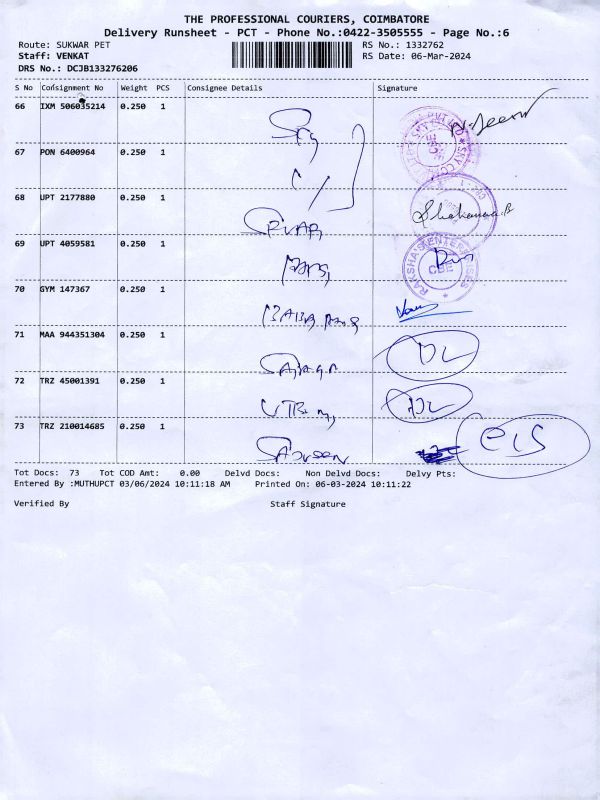 THE PROFESSIONAL COURIERS, COIMBATORE
Delivery Runsheet - PCT - Phone No.:0422-3505555 - Page No.:6
Route: SUKWAR PET RS No.: 1332762
Staff: VENKAT RS Date: 06-Mar-2024
DRS No.: DCJB133276206
S No Consignment No Weight PCS Consignee Details Signature
66 IXM 506035214 0.250 1
67 PON 6400964 0.250 1
68 UPT 2177880 0.250 1
69 UPT 4059581 0.250 1
RAKSHA'S ENTERPRISES CBE
70 GYM 147367 0.250 1
71 MAA 944351304 0.250 1
72 TRZ 45001391 0.250 1
73 TRZ 210014685 0.250 1
Tot Docs: 73 Tot COD Amt: 0.00 Delvd Docs: Non Delvd Docs: Delvy Pts:
Entered By :MUTHUPCT 03/06/2024 10:11:18 AM Printed On: 06-03-2024 10:11:22
Verified By Staff Signature